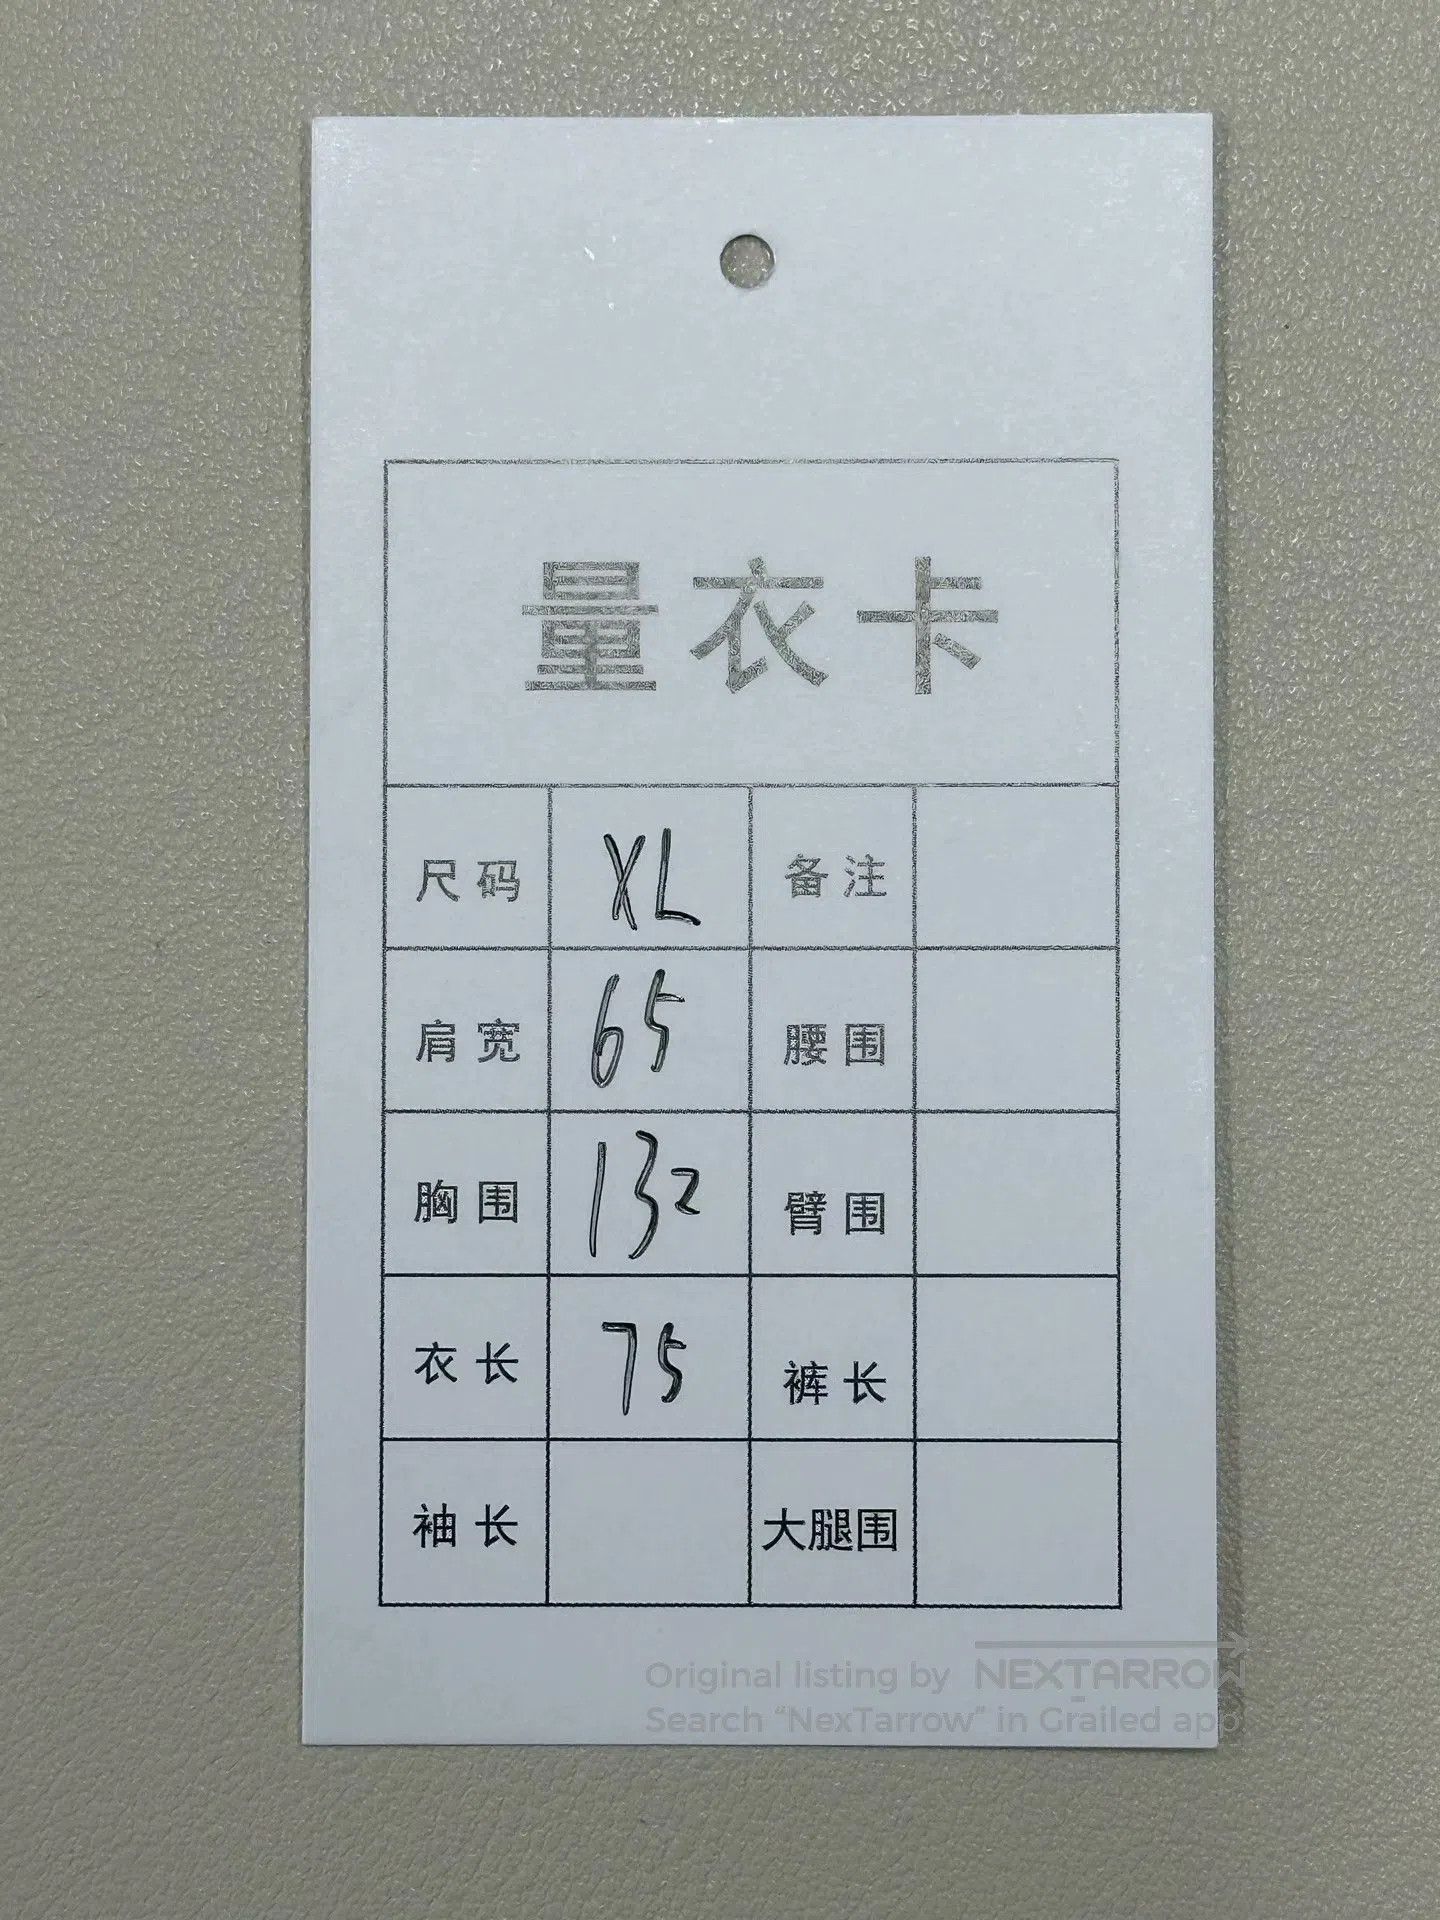 量衣卡
尺码 XL 备注
肩宽 65 腰围
胸围 132 臂围
衣长 75 裤长
袖长 大腿围
Original listing by NEXTARROW
Search “NexTarrow” in Grailed app